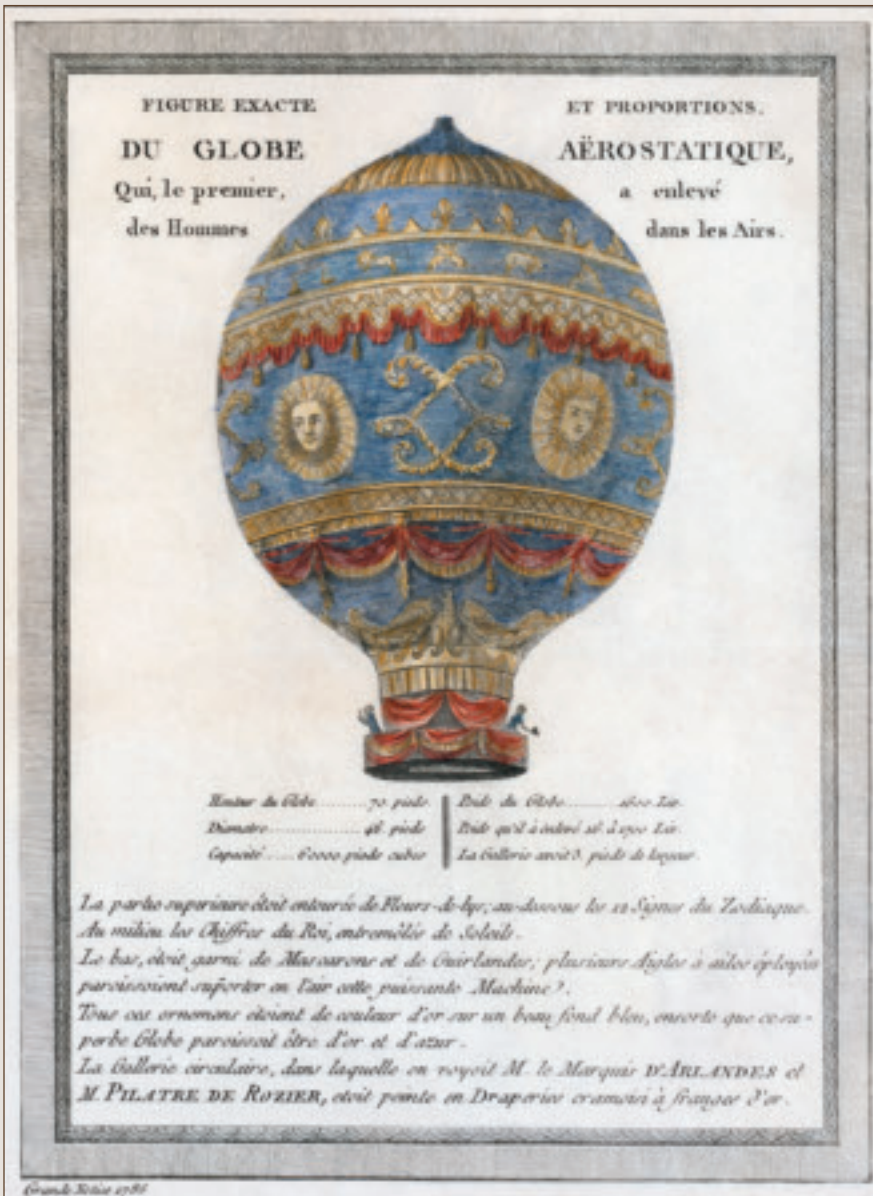 FIGURE EXACTE ET PROPORTIONS.
DU GLOBE AËROSTATIQUE,
Qui, le premier, a enlevé
des Hommes dans les Airs.
Hauteur du Globe ........ 70. pieds.
Diametre ................ 46. pieds
Capacité ..... 60000 pieds cubes
Poids du Globe ......... 1600. Liv.
Poids qu'il à enlevé 16. à 1700 Liv.
La Gallerie avoit 3. pieds de largeur.
La partie superieure étoit entourée de Fleurs-de-lys; au-dessous les 12 Signes du Zodiaque.
Au milieu les Chiffres du Roi, entremêlés de Soleils.
Le bas, étoit garni de Mascarons et de Guirlandes; plusieurs Aigles à ailes éployées
paroissoient suporter en l'air cette puissante Machine.
Tous ces ornemens étoient de couleur d'or sur un beau fond bleu, ensorte que ce su-
perbe Globe paroissoit être d'or et d'azur.
La Gallerie circulaire, dans laquelle on voyoit M. le Marquis D'ARLANDES et
M. PILATRE DE ROZIER, etoit peinte en Draperies cramoisi à franges d'or.
1786